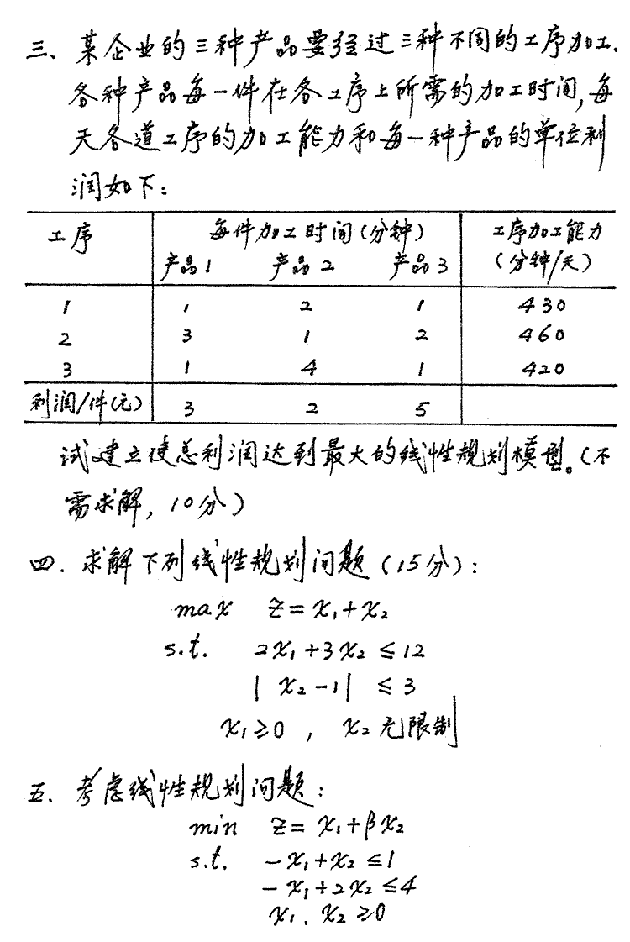 三、某企业的三种产品要经过三种不同的工序加工.
各种产品每一件在各工序上所需的加工时间,每
天各道工序的加工能力和每一种产品的单位利
润如下:
工序 每件加工时间(分钟) 工序加工能力
产品1 产品2 产品3 (分钟/天)
1 1 2 1 430
2 3 1 2 460
3 1 4 1 420
利润/件(元) 3 2 5
试建立使总利润达到最大的线性规划模型。(不
需求解, 10分)
四. 求解下列线性规划问题(15分):
max Z=x₁+x₂
s.t. 2x₁+3x₂≤12
|x₂-1| ≤3
x₁≥0, x₂无限制
五. 考虑线性规划问题:
min Z=x₁+βx₂
s.t. -x₁+x₂≤1
-x₁+2x₂≤4
x₁, x₂≥0